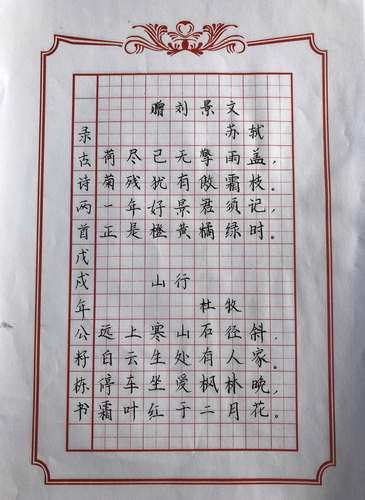 赠刘景文
苏轼
荷尽已无擎雨盖，
菊残犹有傲霜枝。
一年好景君须记，
正是橙黄橘绿时。
山行
杜牧
远上寒山石径斜，
白云生处有人家。
停车坐爱枫林晚，
霜叶红于二月花。
录古诗两首戊戌年公籽栋书